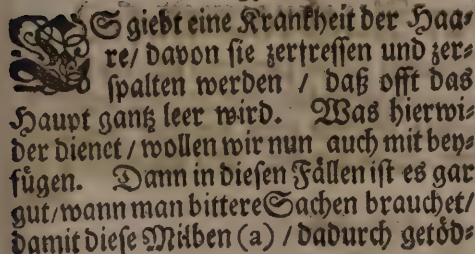 ES giebt eine Krankheit der Haa⸗
re/ davon sie zertressen und zer⸗
spalten werden / daß offt das
Haupt gantz leer wird. Was hierwi⸗
der dienet / wollen wir nun auch mit bey⸗
fügen. Dann in diesen Fällen ist es gar
gut/ wann man bittere Sachen brauchet/
damit diese Milben (a) / dadurch getöd⸗